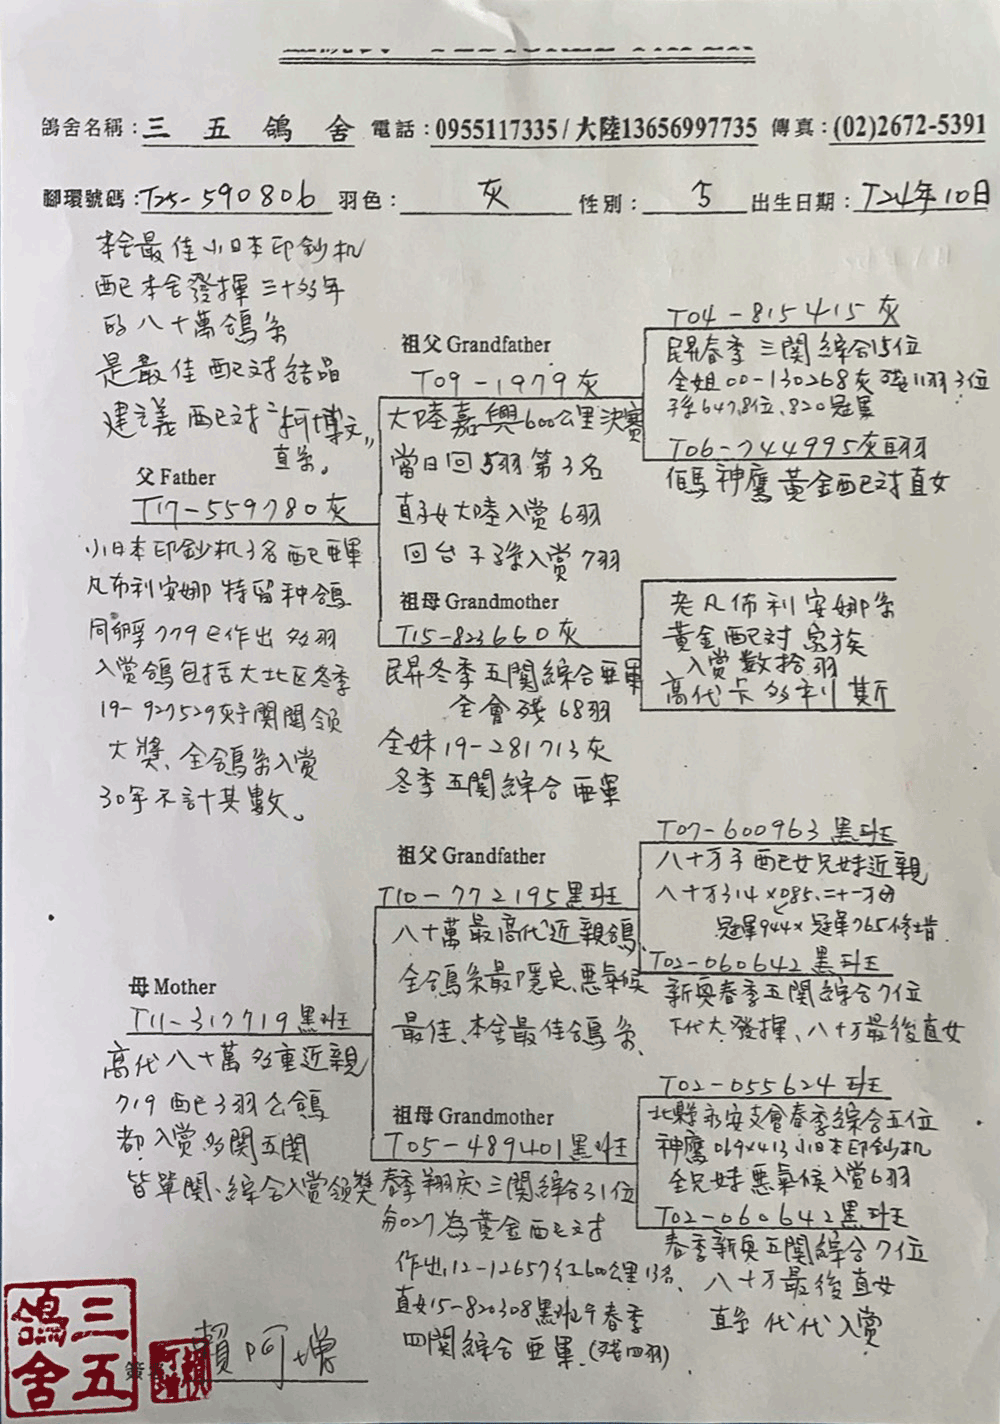 鴿舍名稱：三 五 鴿 舍 電話：0955117335/大陸13656997735 傳真：(02)2672-5391
腳環號碼：T25-590806 羽色：灰 性別：ㄎ 出生日期：T24年10日
本舍最佳小日本印鈔机
配本舍發揮三十多年
的八十萬鴿系
是最佳配对結晶
建議配对"柯博文"
直系。
父 Father
T17-559780灰
小日本印鈔机3名配亜軍
凡布利安娜 特留种鴿
同孵779已作出多羽
入賞鴿包括大北区冬季
19-927529灰于関関領
大獎、全鴿系入賞
30年不計其數。
祖父 Grandfather
T09-1979灰
大陸嘉興600公里決賽
當日回5羽第3名
直子女大陸入賞6羽
回台子孫入賞7羽
祖母 Grandmother
T15-823660灰
民昇冬季五関綜合亜軍
全會殘68羽
全妹19-281713灰
冬季五関綜合亜軍
T04-815415灰
民昇春季三関綜合15位
全姐00-130268灰殘11羽3位
孫647.8位、820冠軍
T06-744995灰白羽
佰馬神鷹黃金配对直女
老凡佈利安娜系
黃金配对家族
入賞數拾羽
高代卡多利斯
母 Mother
T11-317719黑班
高代八十萬多重近親
719配3羽公鴿
都入賞多関五関
皆單関、綜合入賞領獎
祖父 Grandfather
T10-772195黑班
八十萬最高代近親鴿
全鴿系最隱定、悪氣候
最佳、本舍最佳鴿系、
祖母 Grandmother
T05-489401黑班
春季翔庆三関綜合31位
与027為黃金配对
作出12-12657红600公里13名、
直女15-820308黑班♀春季
四関綜合亜軍(殘四羽)
T07-600963黑班
八十万子配女兄妹近親
八十万314x085.二十一万♂
冠軍944x冠軍765修堦
T02-060642黑班
新奥春季五関綜合7位
下代大發揮、八十万最後直女
T02-055624班
北縣永安支會春季綜合五位
神鷹069x413小日本印鈔机
全兄妹悪氣候入賞6羽
T02-060642黑班
春季新奥五関綜合7位
八十万最後直女
直系代代入賞
三五鴿舍
簽 賴阿增